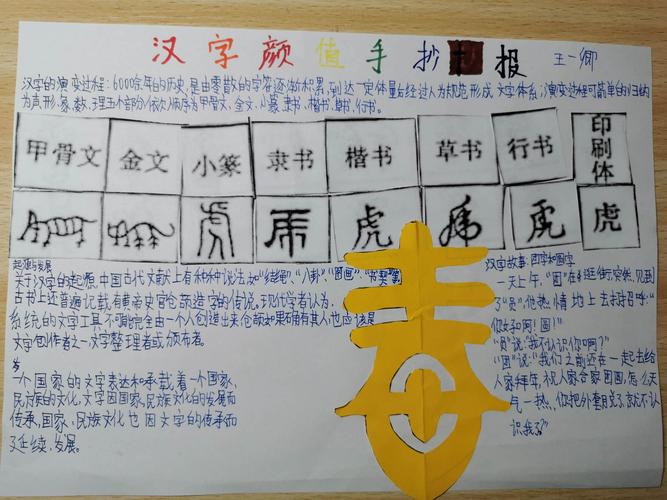 汉字颜值手抄报
王一卿
汉字的演变过程:6000余年的历史,是由零散的字符逐渐积累,到达一定体量后经过人为规范形成文字体系;演变过程可简单的归纳
为声、形、象、数、理五个部分(依次)顺序为甲骨文、金文、小篆、隶书、楷书、草书、行书。
甲骨文 金文 小篆 隶书 楷书 草书 行书 印刷体
虎 虎 虎 虎 虎 虎 虎 虎
起源与发展
关于汉字的起源,中国古代文献上有种种说法,如"结绳"、"八卦"、"图画"、"书契"等,
古书上还普遍记载有黄帝史官仓颉造字的传说。现代学者认为,
系统的文字工具不可能完全由一个人创造出来,仓颉如果确有其人也应该是
文字创作者之一,文字整理者或颁布者。
一个国家的文字表达和承载着一个国家、
民族的文化,文字因国家、民族文化的发展而
传承,国家、民族文化也因文字的传承而
延续、发展。
春
汉字故事:员字和圆字
一天上午,"圆"在逛街突然,见到
了"员"他热情地上去打招呼:"
你好啊!圆!"
"员"说:"我不认识你啊?"
"圆"说:"我们之前还在一起去给
人家拜年,祝人家合家团圆,怎么天
气一热,你把外套脱了就不认
识我了?"